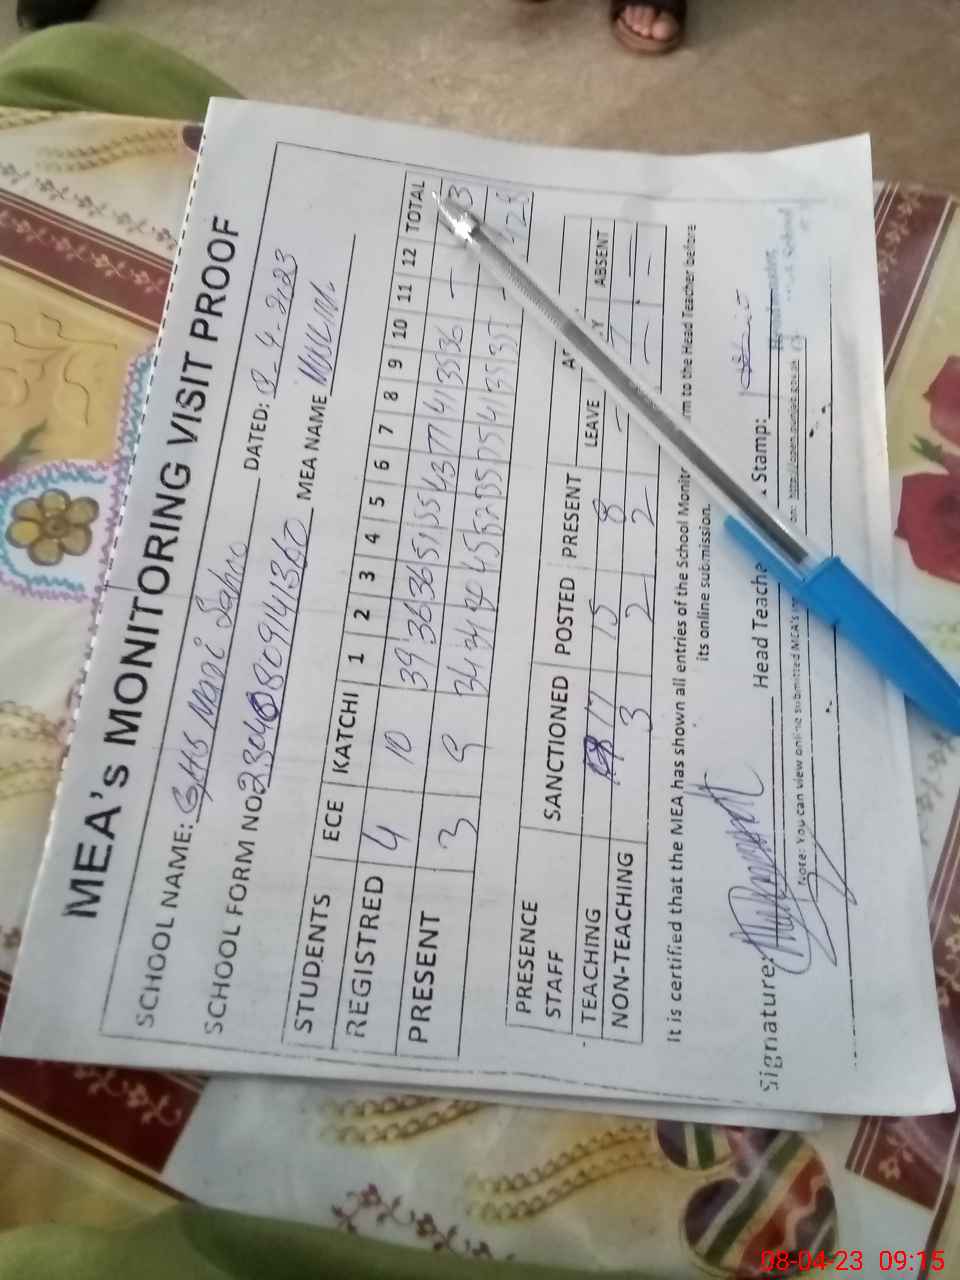 MEA's MONITORING VISIT PROOF
SCHOOL NAME: GHS Mari Sahro DATED: 8-4-2023
SCHOOL FORM NO 23040809141360 MEA NAME
STUDENTS ECE KATCHI 1 2 3 4 5 6 7 8 9 10 11 12 TOTAL
REGISTRED 4 10 39 36 36 51 55 43 77 41 35 36 —
PRESENT 3 9 34 34 40 45 52 35 75 41 35 35 -
PRESENCE
STAFF SANCTIONED POSTED PRESENT LEAVE ABSENT
TEACHING 17 15 8 — 7
NON-TEACHING 3 2 2 — — —
It is certified that the MEA has shown all entries of the School to the Head Teacher before
its online submission.
Signature: Head Stamp:
Note: You can view online submitted MEA's http://open.punjab.gov.pk
08-04-23 09:15